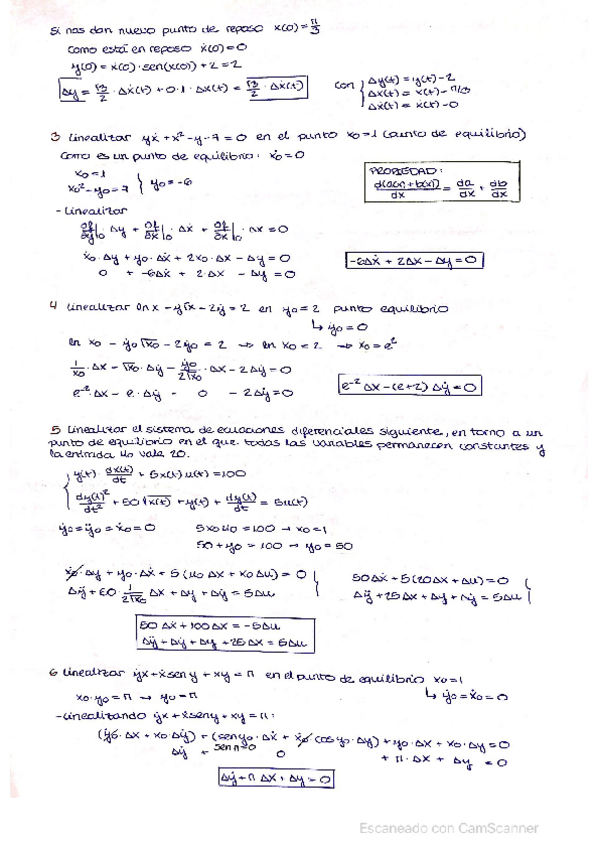 Si nos dan nuevo punto de reposo x(0) = π/3
como está en reposo ẋ(0) = 0
y(0) = ẋ(0) · sen(x(0)) + 2 = 2
Δy = √3/2 · Δẋ(t) + 0·1·Δx(t) = √3/2 · Δẋ(t) con { Δy(t) = y(t) - 2
Δx(t) = x(t) - π/3
Δẋ(t) = ẋ(t) - 0
3 Linealizar yẋ + x² - y - 7 = 0 en el punto x0 = 1 (punto de equilibrio)
Como es un punto de equilibrio: ẋ0 = 0
x0 = 1
x0² - y0 = 7 } y0 = -6
PROPIEDAD:
d(a(x)+b(x))/dx = da/dx + db/dx
- Linealizar
∂f/∂y|0 · Δy + ∂f/∂ẋ|0 · Δẋ + ∂f/∂x|0 · Δx = 0
ẋ0 · Δy + y0 · Δẋ + 2x0 · Δx - Δy = 0
0 + -6Δẋ + 2·Δx - Δy = 0
-6Δẋ + 2Δx - Δy = 0
4 Linealizar ln x - ẏ√x - 2ẏ = 2 en y0 = 2 punto equilibrio
↳ ẏ0 = 0
ln x0 - ẏ0 √x0 - 2ẏ0 = 2 ⇒ ln x0 = 2 ⇒ x0 = e²
1/x0 · Δx - √x0 · Δẏ - ẏ0/2√x0 · Δx - 2Δẏ = 0
e⁻² · Δx - e · Δẏ - 0 - 2Δẏ = 0
e⁻² Δx - (e+2) Δẏ = 0
5 Linealizar el sistema de ecuaciones diferenciales siguiente, en torno a un
punto de equilibrio en el que todas las variables permanecen constantes y
la entrada u0 vale 20.
{ y(t) · dx(t)/dt + 5x(t)u(t) = 100
dy(t)²/dt² + 50√x(t) + y(t) + dy(t)/dt = 5u(t)
ÿ0 = ẏ0 = ẋ0 = 0 5x0u0 = 100 → x0 = 1
50 + y0 = 100 → y0 = 50
ẋ0 · Δy + y0 · Δẋ + 5(u0 Δx + x0 Δu) = 0
Δÿ + 50 · 1/2√x0 Δx + Δy + Δẏ = 5Δu
50Δẋ + 5(20Δx + Δu) = 0
Δÿ + 25Δx + Δy + Δẏ = 5Δu
50 Δẋ + 100 Δx = -5Δu
Δÿ + Δẏ + Δy + 25Δx = 5Δu
6 Linealizar ẏx + ẋ sen y + xy = π en el punto de equilibrio x0 = 1
x0 · y0 = π → y0 = π ↳ ẏ0 = ẋ0 = 0
- Linealizando ẏx + ẋ sen y + xy = π:
(ẏ0 · Δx + x0 · Δẏ) + (sen y0 · Δẋ + ẋ0 · cos y0 · Δy) + y0 · Δx + x0 · Δy = 0
Δẏ + sen π=0 0 + π · Δx + Δy = 0
Δẏ + π Δx + Δy = 0
Escaneado con CamScanner